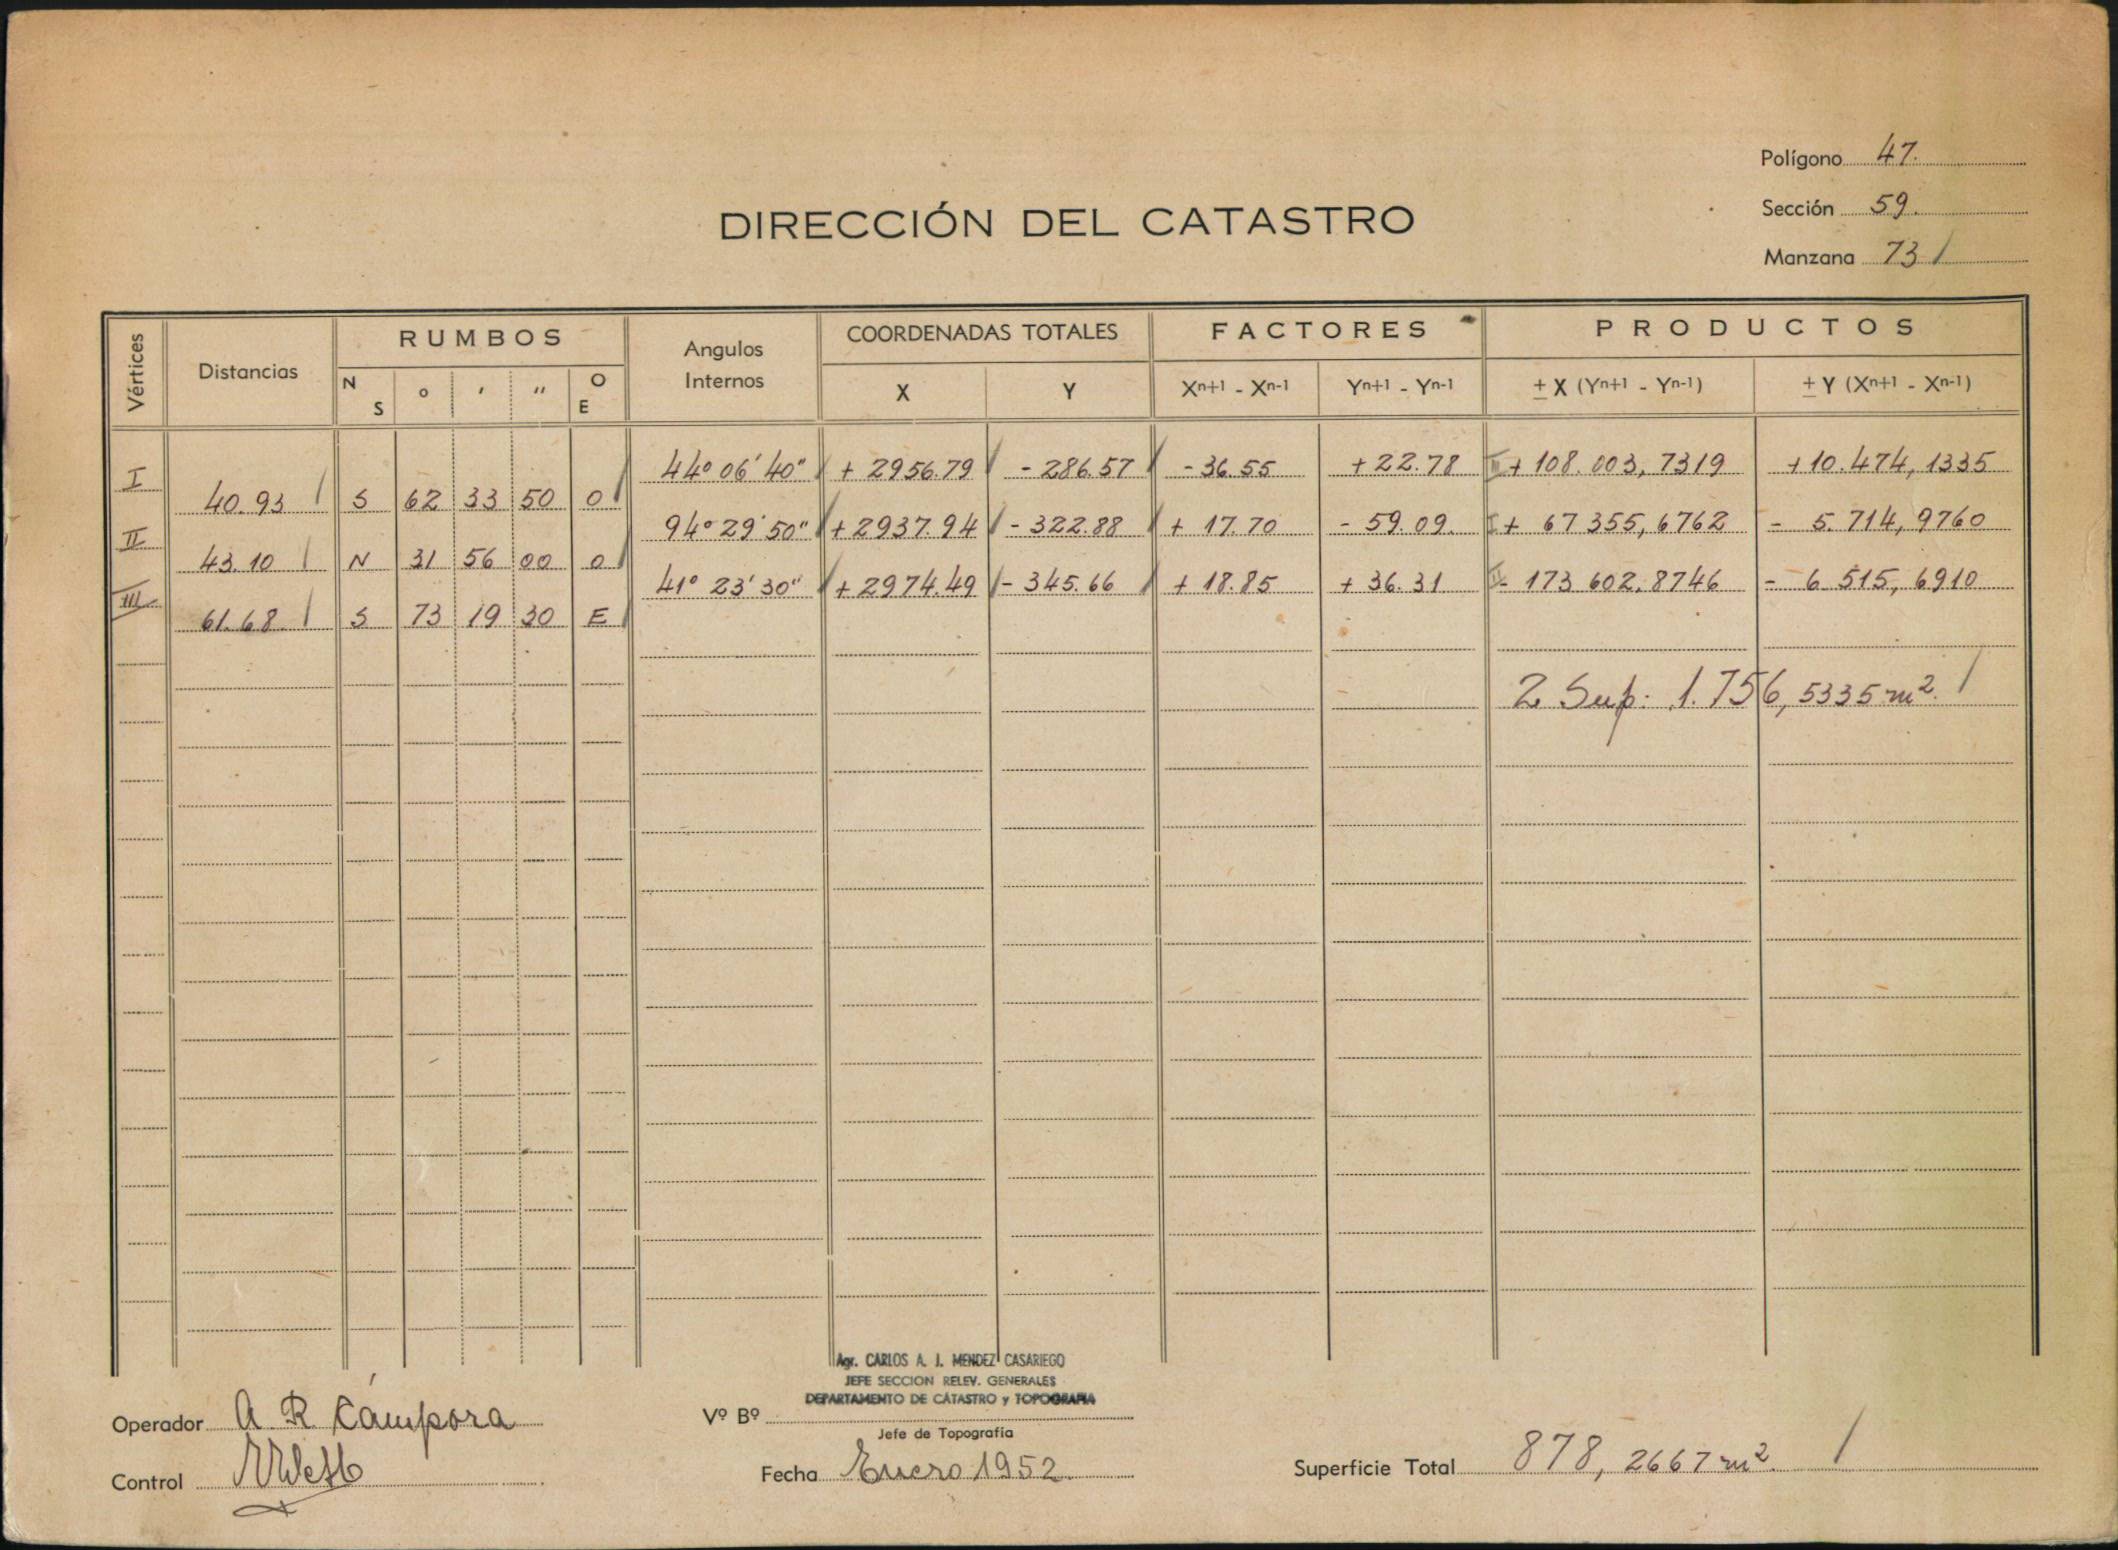 Polígono 47.
Sección 59.
Manzana 73 /
DIRECCIÓN DEL CATASTRO
Vértices
Distancias
RUMBOS
N S ° ' " O E
Angulos Internos
COORDENADAS TOTALES
X Y
FACTORES
Xn+1 - Xn-1 Yn+1 - Yn-1
PRODUCTOS
± X (Yn+1 - Yn-1) ± Y (Xn+1 - Xn-1)
I 44° 06' 40" / + 2956.79 / - 286.57 / - 36.55 + 22.78 III + 108.003,7319 + 10.474,1335
40.93 / S 62 33 50 O /
II 94° 29' 50" / + 2937.94 / - 322.88 / + 17.70 - 59.09. I + 67 355,6762 - 5.714,9760
43.10 / N 31 56 00 O /
III 41° 23' 30" / + 2974.49 / - 345.66 / + 18.85 + 36.31 II - 173 602,8746 - 6.515,6910
61.68 / S 73 19 30 E /
2 Sup: 1.756,5335 m². /
Agr. CARLOS A. J. MENDEZ CASARIEGO
JEFE SECCION RELEV. GENERALES
DEPARTAMENTO DE CATASTRO y TOPOGRAFIA
Operador A R Cámpora
Vº Bº
Jefe de Topografía
Control
Fecha Enero 1952.
Superficie Total 878,2667 m². /